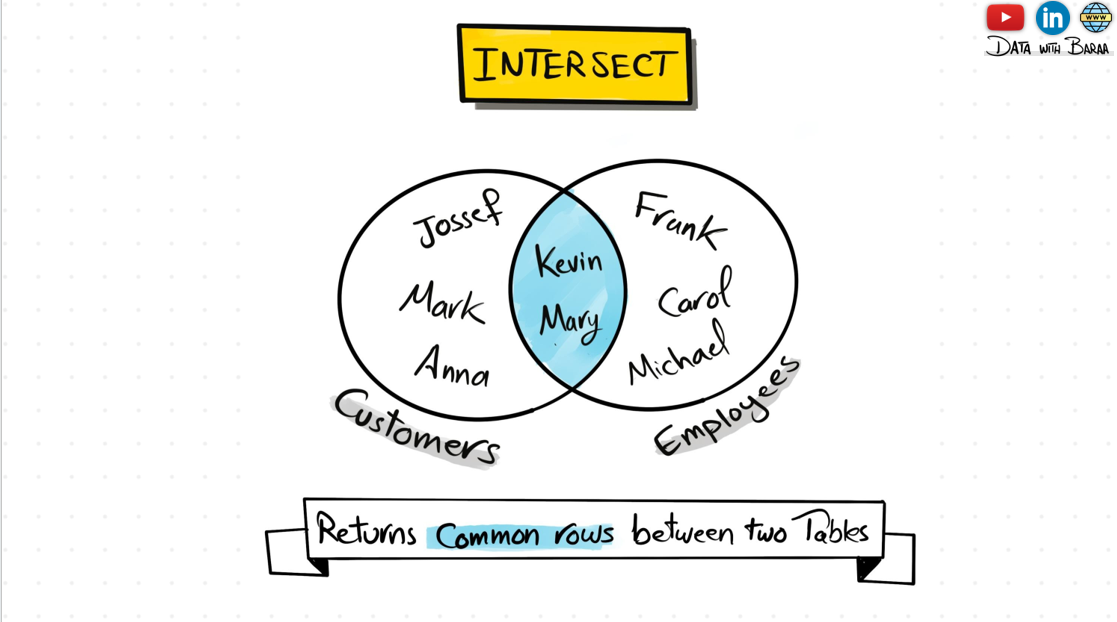 in
WWW
DATA WITH BARAA
INTERSECT
Jossef
Mark
Anna
Kevin
Mary
Frank
Carol
Michael
Customers
Employees
Returns Common rows between two Tables